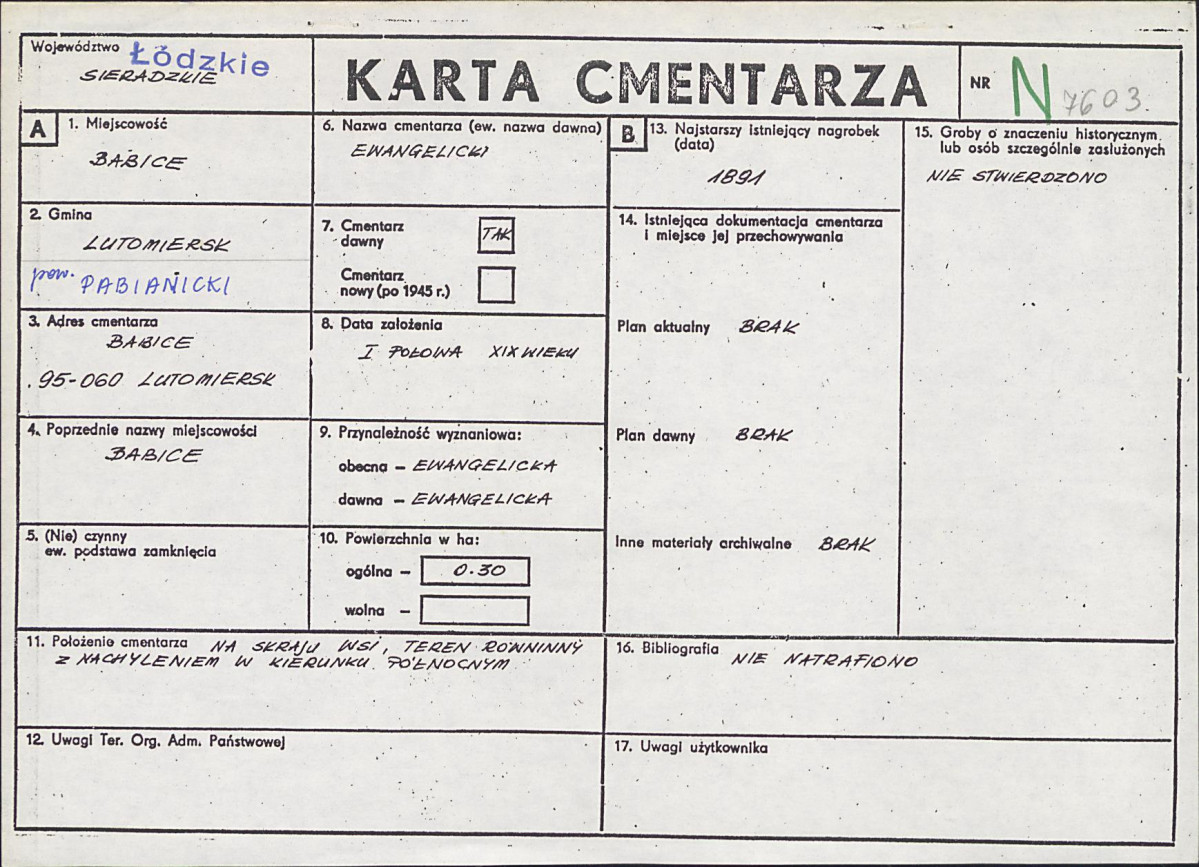 Województwo Łódzkie
SIERADZKIE
KARTA CMENTARZA
NR N 7603.
A
1. Miejscowość
BABICE
2. Gmina
LUTOMIERSK
pow. PABIANICKI
3. Adres cmentarza
BABICE
95-060 LUTOMIERSK
4. Poprzednie nazwy miejscowości
BABICE
5. (Nie) czynny
ew. podstawa zamknięcia
6. Nazwa cmentarza (ew. nazwa dawna)
EWANGELICKI
7. Cmentarz
dawny
TAK
Cmentarz
nowy (po 1945 r.)
8. Data założenia
I POŁOWA XIX WIEKU
9. Przynależność wyznaniowa:
obecna – EWANGELICKA
dawna – EWANGELICKA
10. Powierzchnia w ha:
ogólna – 0.30
wolna –
11. Położenie cmentarza NA SKRAJU WSI, TEREN RÓWNINNY
Z NACHYLENIEM W KIERUNKU PÓŁNOCNYM
12. Uwagi Ter. Org. Adm. Państwowej
B
13. Najstarszy istniejący nagrobek
(data)
1891
14. Istniejąca dokumentacja cmentarza
i miejsce jej przechowywania
Plan aktualny BRAK
Plan dawny BRAK
Inne materiały archiwalne BRAK
15. Groby o znaczeniu historycznym
lub osób szczególnie zasłużonych
NIE STWIERDZONO
16. Bibliografia
NIE NATRAFIONO
17. Uwagi użytkownika